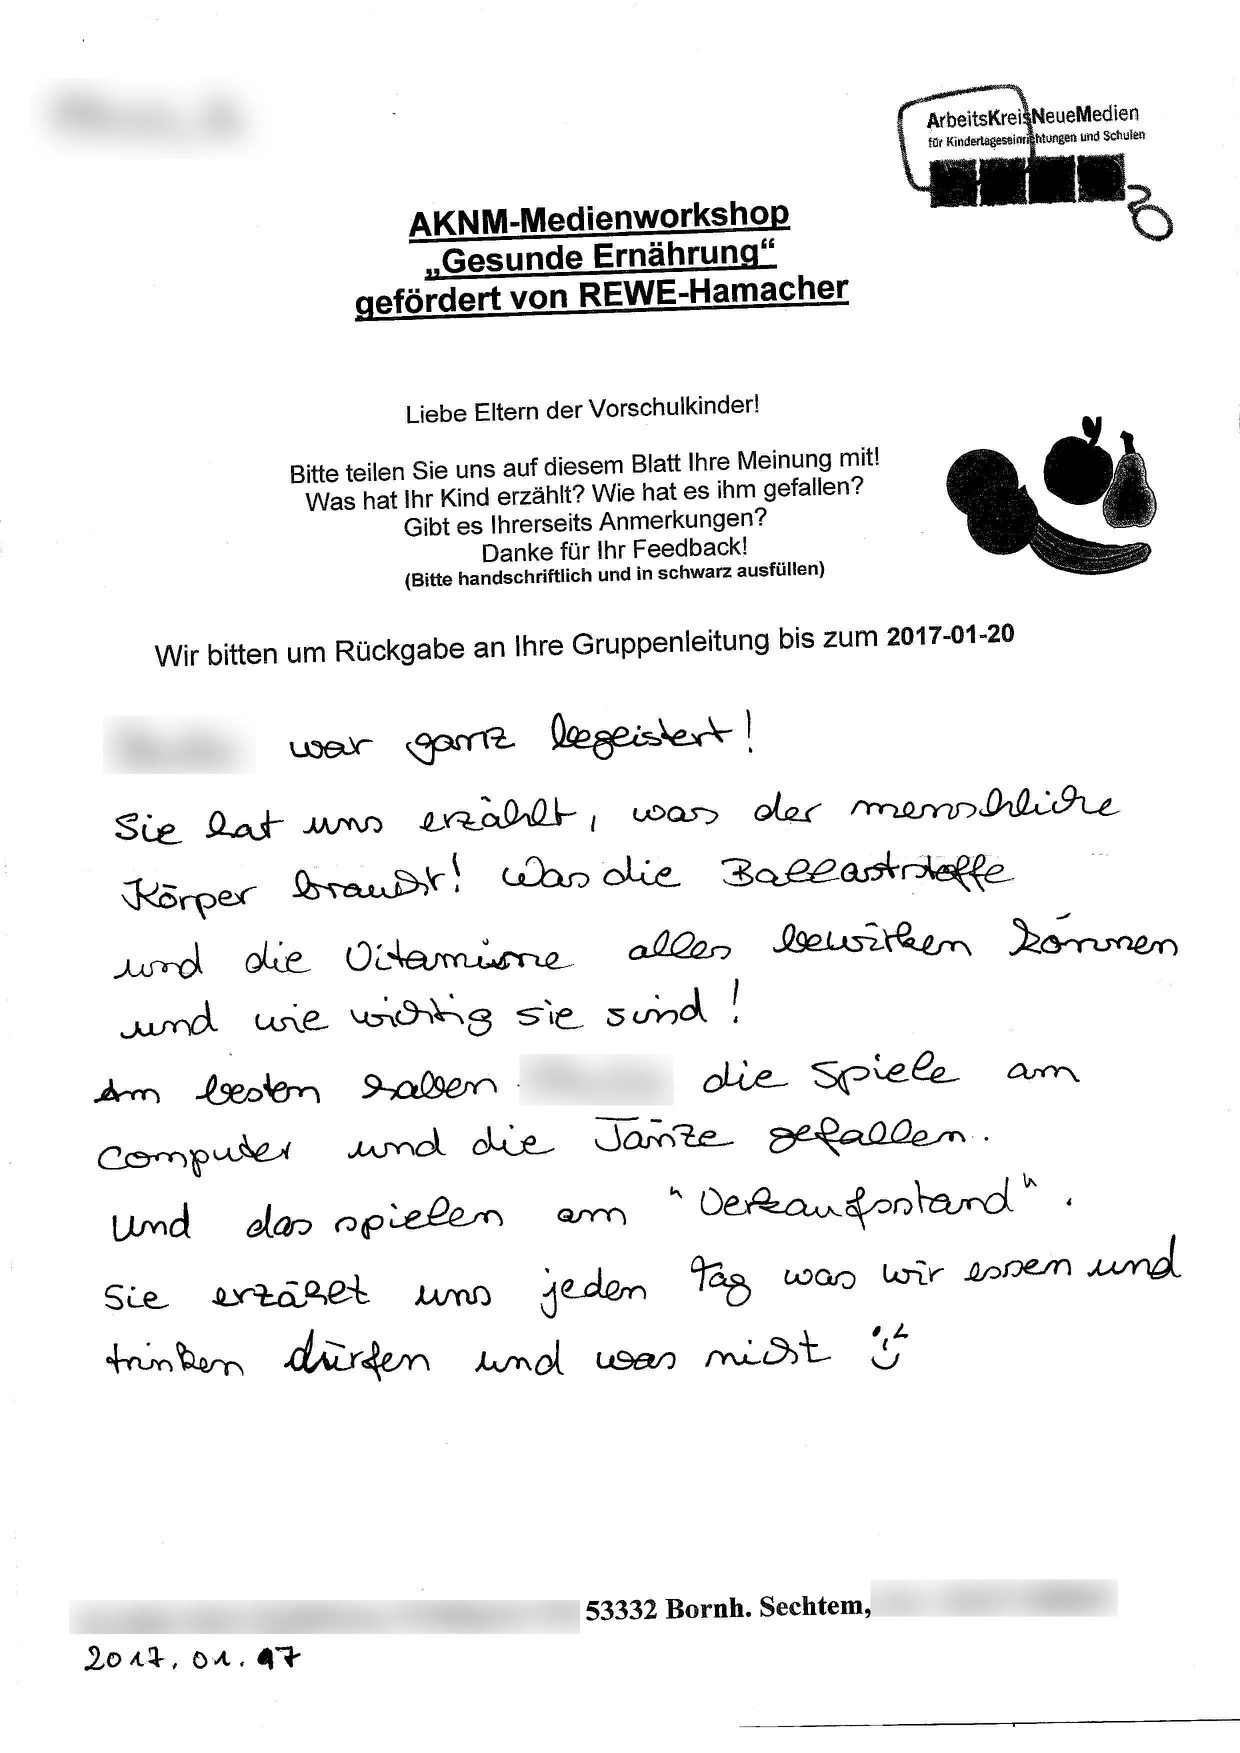 ArbeitsKreisNeueMedien
für Kindertageseinrichtungen und Schulen
AKNM-Medienworkshop
„Gesunde Ernährung“
gefördert von REWE-Hamacher
Liebe Eltern der Vorschulkinder!
Bitte teilen Sie uns auf diesem Blatt Ihre Meinung mit!
Was hat Ihr Kind erzählt? Wie hat es ihm gefallen?
Gibt es Ihrerseits Anmerkungen?
Danke für Ihr Feedback!
(Bitte handschriftlich und in schwarz ausfüllen)
Wir bitten um Rückgabe an Ihre Gruppenleitung bis zum 2017-01-20
war ganz begeistert!
Sie hat uns erzählt, was der menschliche
Körper braucht! Was die Ballaststoffe
und die Vitamine alles bewirken können
und wie wichtig sie sind!
Am besten haben die Spiele am
Computer und die Tänze gefallen.
Und das spielen am "Verkaufsstand".
Sie erzählt uns jeden Tag was wir essen und
trinken dürfen und was nicht
53332 Bornh. Sechtem,
2017.01.17